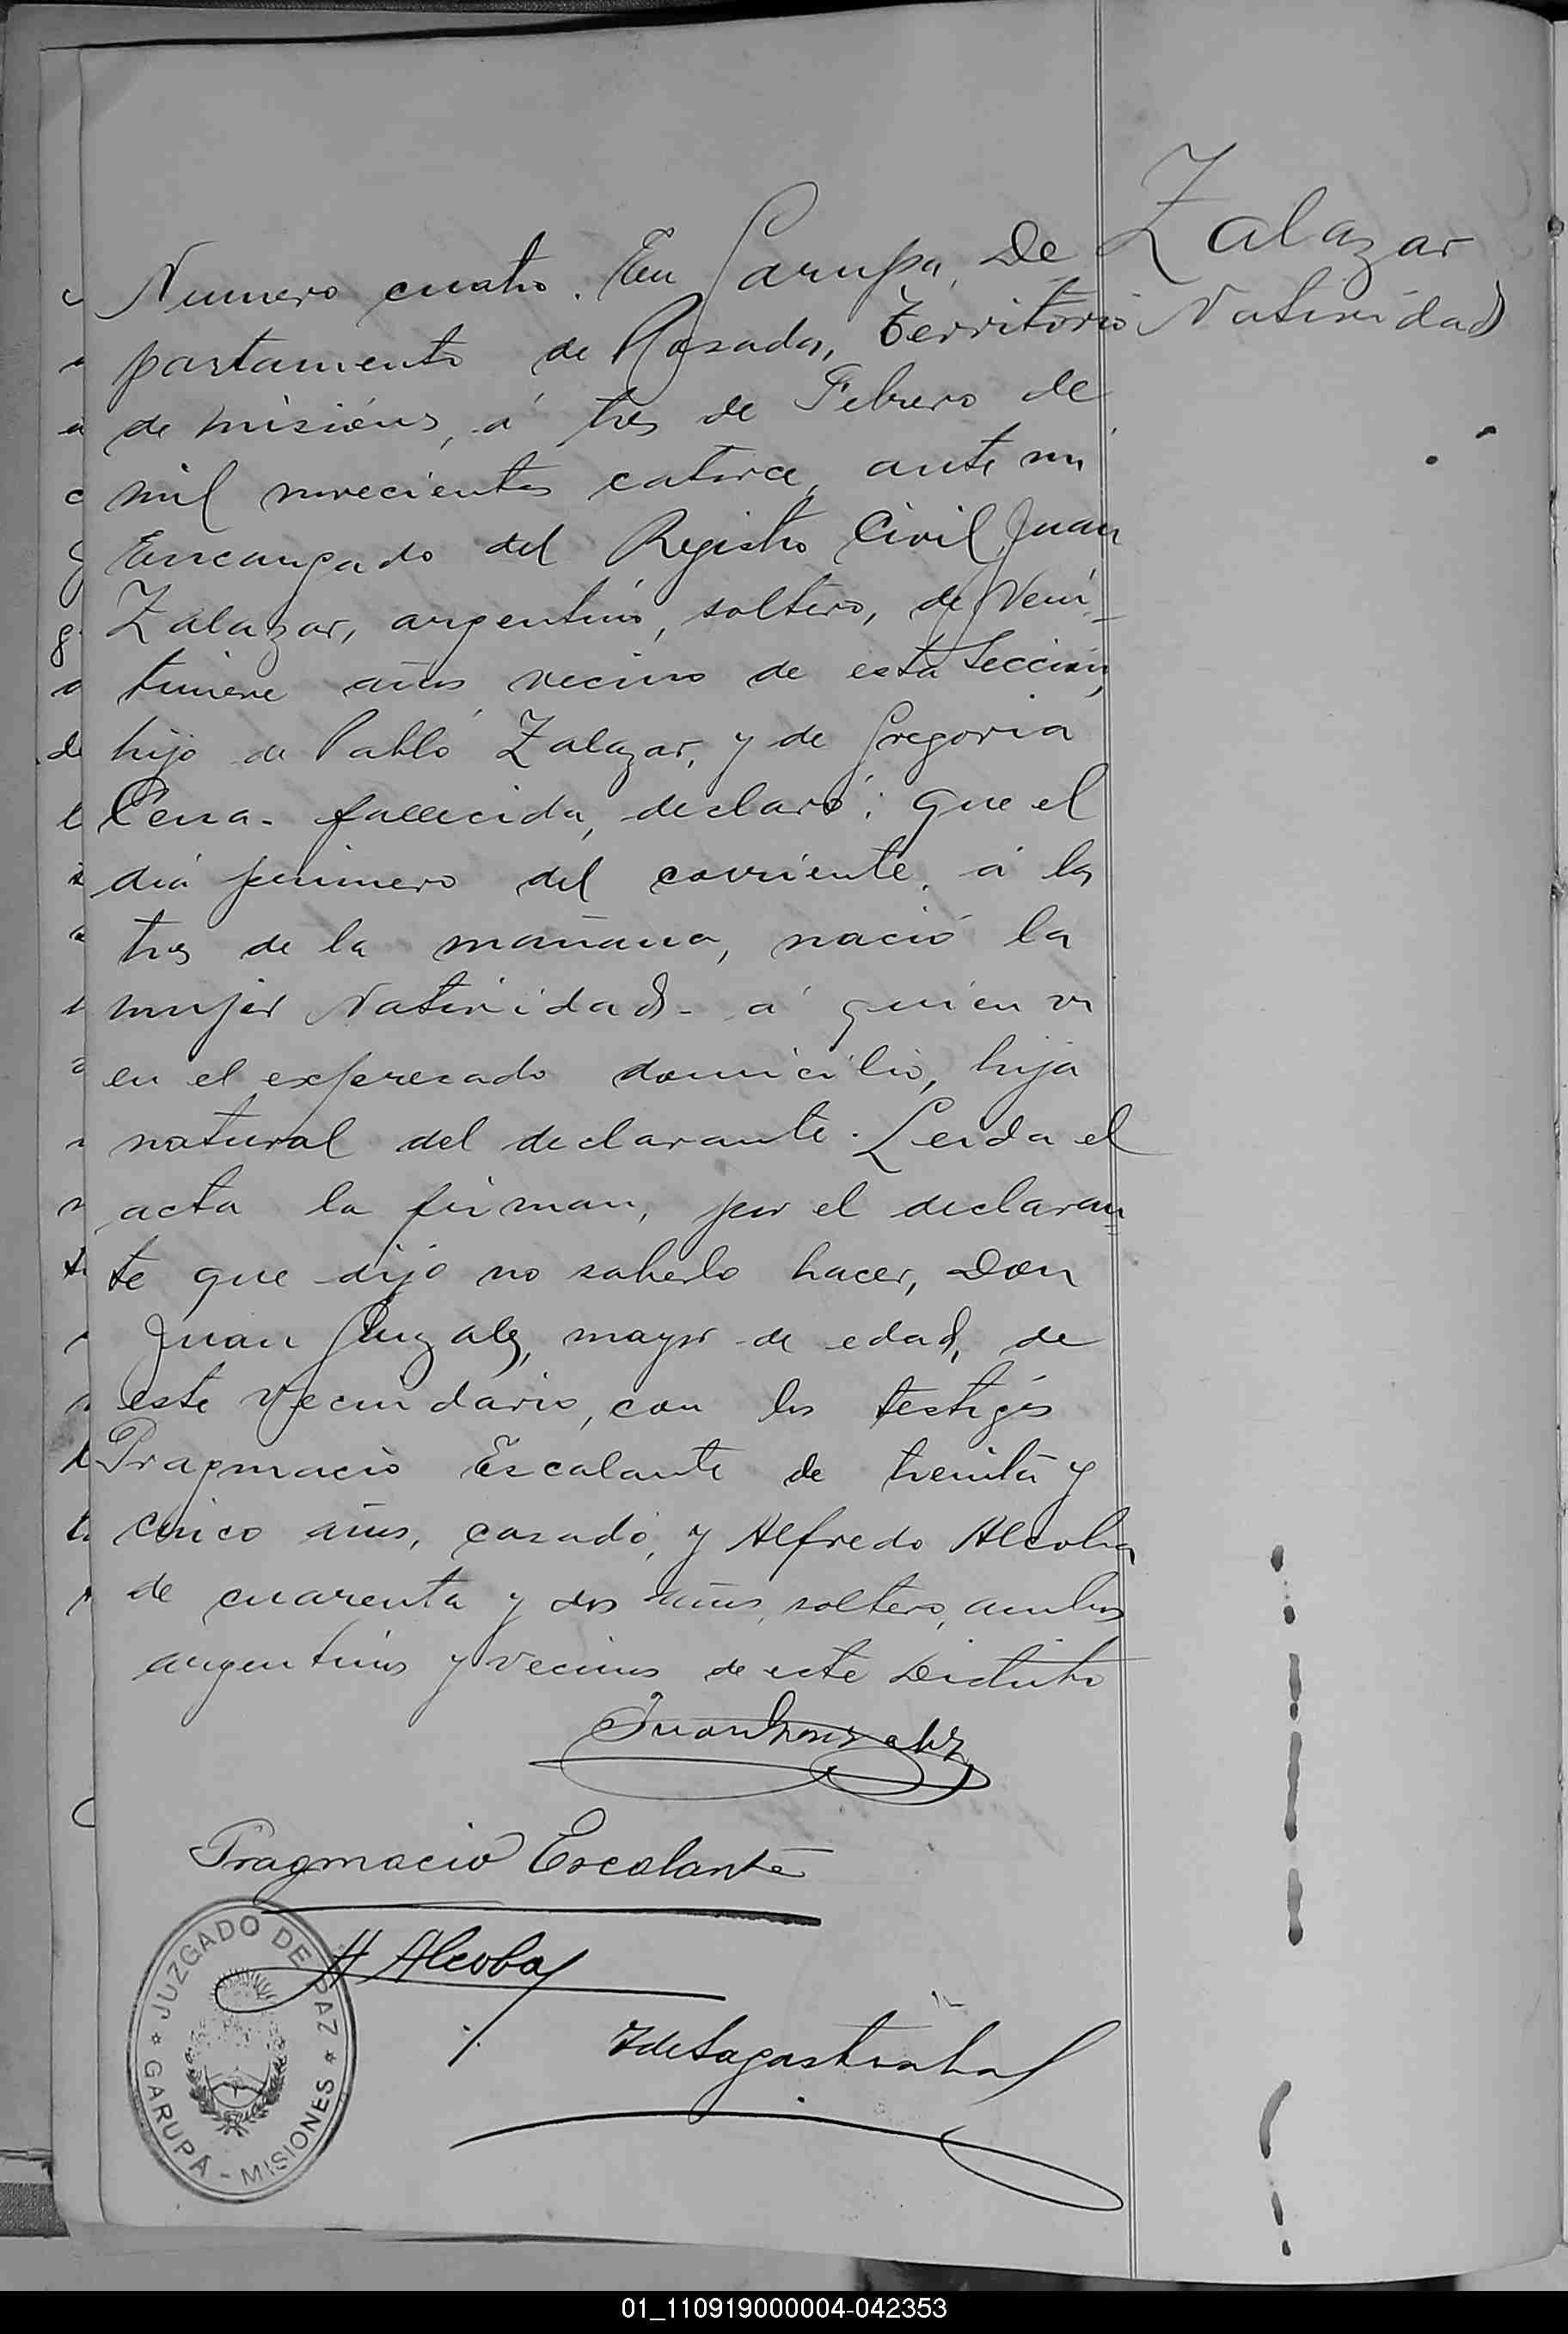 Zalazar
Natividad
Numero cuatro. En Garupa, De
partamento de Posadas, Territorio
de misiones, á tres de Febrero de
mil novecientos catorce, ante mi
Encargado del Registro Civil, Juan
Zalazar, argentino, soltero, de Vein-
tinueve años, vecino de esta Sección,
hijo de Pablo Zalazar, y de Gregoria
fallecida, declaró; que el
dia primero del corriente, á las
tres de la mañana, nació la
mujer Natividad- á quien vi
en el expresado domicilio, hija
natural del declarante. Leida el
acta la firman, por el declaran=
te que dijo no saberlo hacer, Don
Juan Gonzalez, mayor de edad, de
este vecindario, con los testigos
Pragmacio Escalante de treinta y
cinco años, casado, y Alfredo Alcoba
de cuarenta y dos años, soltero, ambos
argentinos y vecinos de este Distrito
Juan Gonzalez
Pragmacio Escalante
A Alcoba
JUZGADO DE PAZ
GARUPÁ - MISIONES
01_110919000004-042353